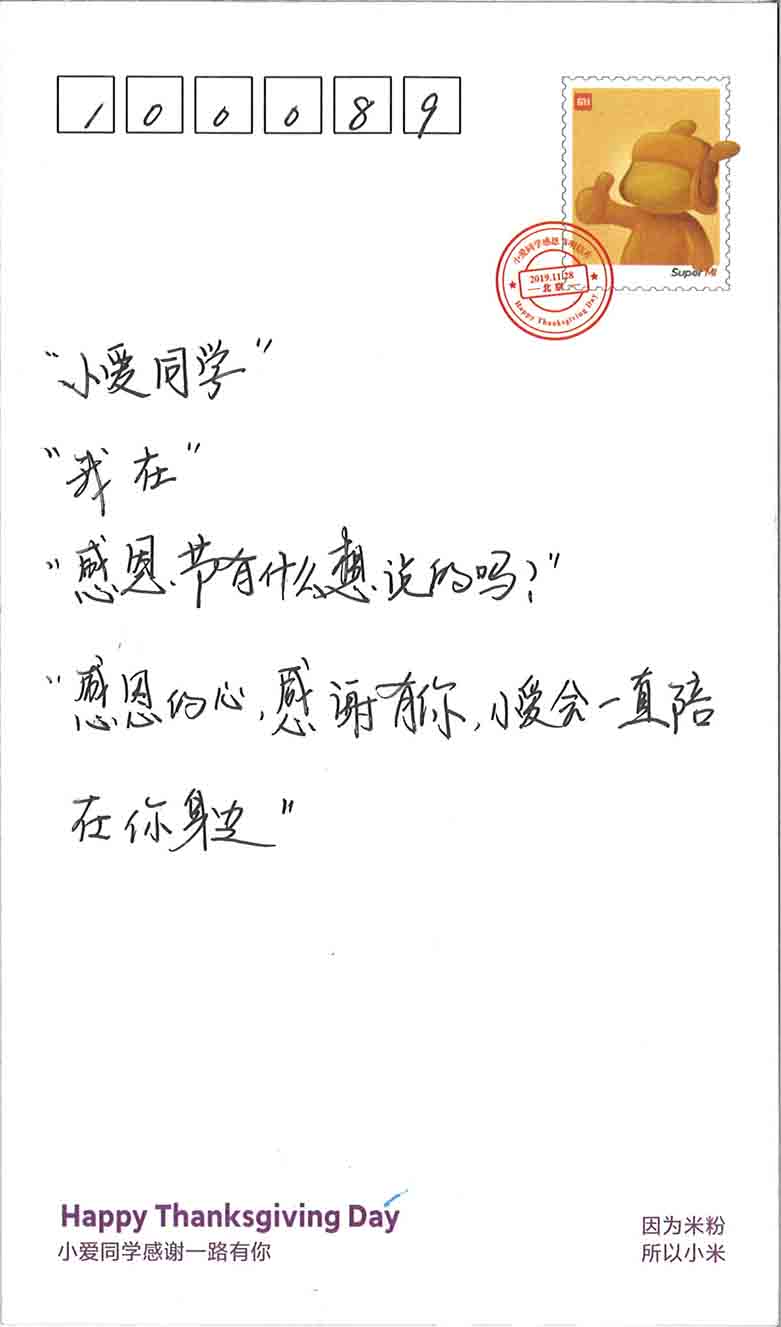 100089
MI
Super MI
小爱同学感恩节明信片
2019.11.28
北京
Happy Thanksgiving Day
“小爱同学”
“我在”
“感恩节有什么想说的吗？”
“感恩的心，感谢有你，小爱会一直陪
在你身边”
Happy Thanksgiving Day
小爱同学感谢一路有你
因为米粉
所以小米